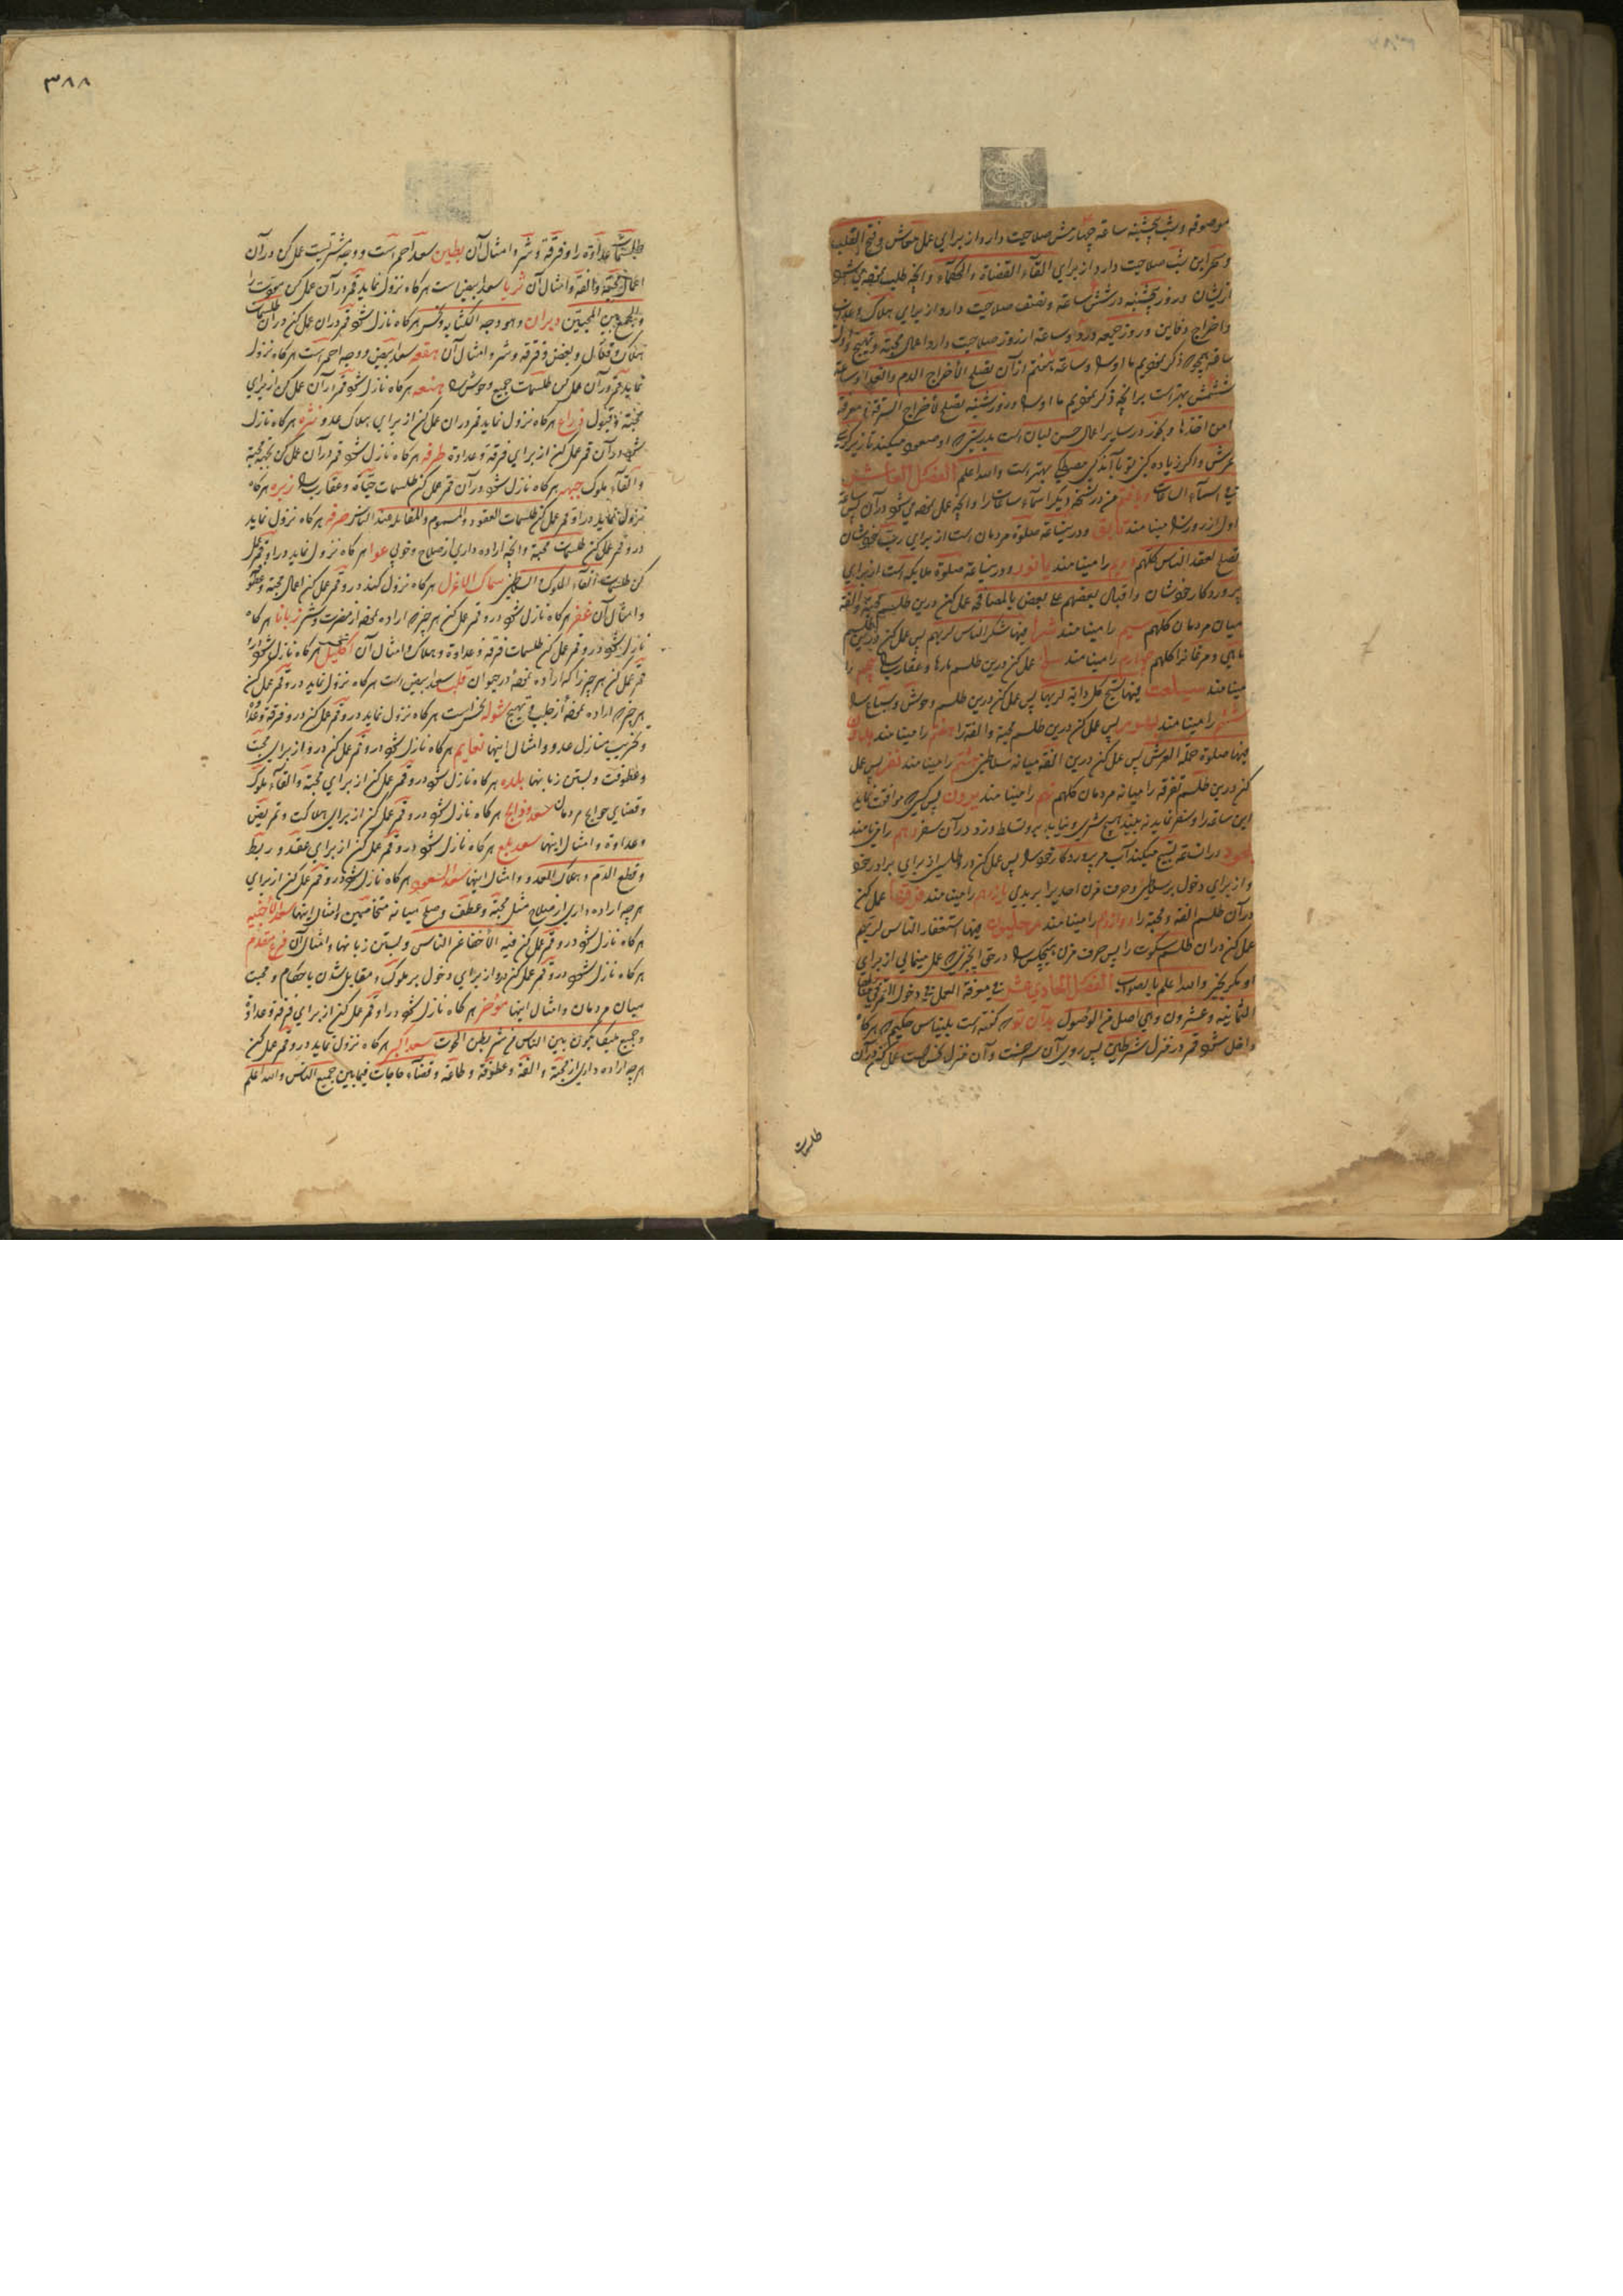 موصوفه وشب پنجشنبه ساعة چهارمش صلاحیت دارد از برای عمل معاش وفتح القلب
وسحر این شب صلاحیت دارد از برای القاء القضاة والحکماء وانچه طلب نمیشود
ازیشان وروز پنجشنبه در شش ساعة ونصف صلاحیت دارد از برای هلاک
واخراج دفاین وروز جمعه در دو ساعة از روز صلاحیت دارد اعمال محبة وتهییج
ششمش بهتر است برانچه ذکر نمودیم ما اورا وروز شنبه یصلح لاخراج السرقة
امن اخذها وبخور در سایر اعمال حسن لبان است بدرستیکه او صعود میکند تا نزدیک
عرش واکر زیاده کنی تو باآن اندکی مصطکی بهتر است والله اعلم الفصل العاشر
فی اسماء الساعات ویافتم من در نسخه دیکر اسماء ساعات را وانچه عمل نموده میشود در آن پس ساعة
اول از روز را مینامند ودرین ساعة صلوة مردمان است از برای رب خودشان
یصلح لعقد السنة الناس کلهم دویم را مینامند یانور ودرین ساعة صلوة ملایکه است از برای
پروردکار خودشان واقبال بعضهم علی بعض بالمصافحه عمل کن درین طلسم محبة والفة
میان مردمان کلهم سیم را مینامند فیها شکر الناس لربهم پس عمل کن درین طلسم
ماهی ومرغانرا کلهم چهارم را مینامند عمل کن درین طلسم مارها وعقارب را پنجم را
مینامند فیها تسبیح کل دابة لربها پس عمل کن درین طلسم وحوش وسباع را
ششم را مینامند پس عمل کن درین طلسم محبة والفة را هفتم را مینامند
فیها صلوة حملة العرش پس عمل کن درین الفة میانه سلاطین هشتم را مینامند پس عمل
کن درین طلسم تفرقه را میانه مردمان کلهم نهم را مینامند بیرون پس کسی که موافقت نماید
این ساعة را وسفر نماید نه بیند هیچ شری ونیابد برو تسلط دزد در آن سفر دهم را مینامند
در آنساعة تسبیح میکند آب مر پروردکار خود را پس عمل کن درو طلسم از برای برادر خود
واز برای دخول بر سلاطین وحرف مزن احدیرا یازدهم را مینامند عمل کن
در آن طلسم الفة ومحبة را دوازدهم را مینامند فیها استغفار الناس لربهم
عمل کن در آن طلسم سکوت را پس حرف مزن بهیچکس را در حق انچیزیکه عمل مینمائی از برای
او مکر بخیر والله اعلم بالصواب الفصل الحادی عشر فی معرفة العمل فی دخول القمر فی منازلها
الثمانیة وعشرون وهی اصل فی الوصول بدان تو که کفته است بلیناس حکیم که هرکاه
داخل شود قمر در منزل شرطین پس روی آن سرخست وآن منزل نحس است عمل کن در آن
طلسمات
۳۸۸
طلسمات عداوة را وفرقة وشر وامثال آن بطین سعد احمر است ووجه مشتریست عمل کن در آن
اعمال محبة والفة وامثال آن ثریا سعد ابیض است هرکاه نزول نماید قمر در آن عمل کن
والجمع بین المحبین دبران وهو وجه الکتابة ونحس هرکاه نازل شود قمر در آن عمل کن در آن طلسمات
هلاک وقتال وبغض وفرقه وشر وامثال آن هقعه سعد ابیض ووجه احمر است هرکاه نزول
نماید قمر در آن عمل کن طلسمات جمیع وحوش را هنعه هرکاه نازل شود قمر در آن عمل کن از برای
محبة وقبول ذراع هرکاه نزول نماید قمر در آن عمل کن از برای هلاک عدو نثره هرکاه نازل
شود در آن قمر عمل کن از برای فرقة وعداوة طرفه هرکاه نازل شود قمر در آن عمل کن محبة
والقاء ملوک جبهه هرکاه نازل شود در آن قمر عمل کن طلسمات حیات وعقارب را زبره هرکاه
نزول نماید در او قمر عمل کن طلسمات العقود والسموم والمقابله عند الناس صرفه هرکاه نزول نماید
درو قمر عمل کن طلسمات محبة وانچه اراده داری از صلاح وخوبی عوا هرکاه نزول نماید در او قمر عمل
کن طلسمات القاء الملوک والسلاطین سماک الاعزل هرکاه نزول کند درو قمر عمل کن اعمال محبة وعطوفة
وامثال آن غفر هرکاه نازل شود درو قمر عمل کن هر چیزیکه اراده نموده از مضرت وشر زبانا هرکاه
نازل شود درو قمر عمل کن طلسمات فرقة وعداوة وهلاک وامثال آن اکلیل هرکاه نازل شود درو
قمر عمل کن هر چیزرا که اراده نموده در حیوان قلب سعد ابیض است هرکاه نزول نماید درو قمر عمل کن
هر چیزیکه اراده نموده از جلب وتهییج شوله نحس است هرکاه نزول نماید درو قمر عمل کن درو فرقة وعداوة
وتخریب منازل عدو وامثال اینها نعایم هرکاه نازل شود درو قمر عمل کن درو از برای محبة
وعطوفت وبستن زبانها بلده هرکاه نازل شود درو قمر عمل کن از برای محبة والقاء ملوک
وقضای حوایج مردمان سعد ذابح هرکاه نازل شود درو قمر عمل کن از برای هلاکت وتمریض
وعداوة وامثال اینها سعد بلع هرکاه نازل شود درو قمر عمل کن از برای عقد وربط
وقطع الدم وهلاک العدو وامثال اینها سعد السعود هرکاه نازل شود درو قمر عمل کن از برای
هرچه اراده داری از صلاح مثل محبة وعطف وصلح میانه متخاصمین وامثال اینها سعد الاخبیه
هرکاه نازل شود درو قمر عمل کن فیه الاخفا عن الناس وبستن زبانها وامثال آن فرع مقدم
هرکاه نازل شود درو قمر عمل کن درو از برای دخول بر ملوک ومقابل شدن باحکام ومحبت
میان مردمان وامثال اینها مؤخر هرکاه نازل شود در او قمر عمل کن از برای فرقة وعداوة
وجمیع مایکون بین الناس من شر بطن الحوت سعد اکبر هرکاه نزول نماید درو قمر عمل کن
هرچه اراده داری از محبة والفة وعطوفة وطاعة وقضاء حاجات فیمابین جمیع الناس والله اعلم